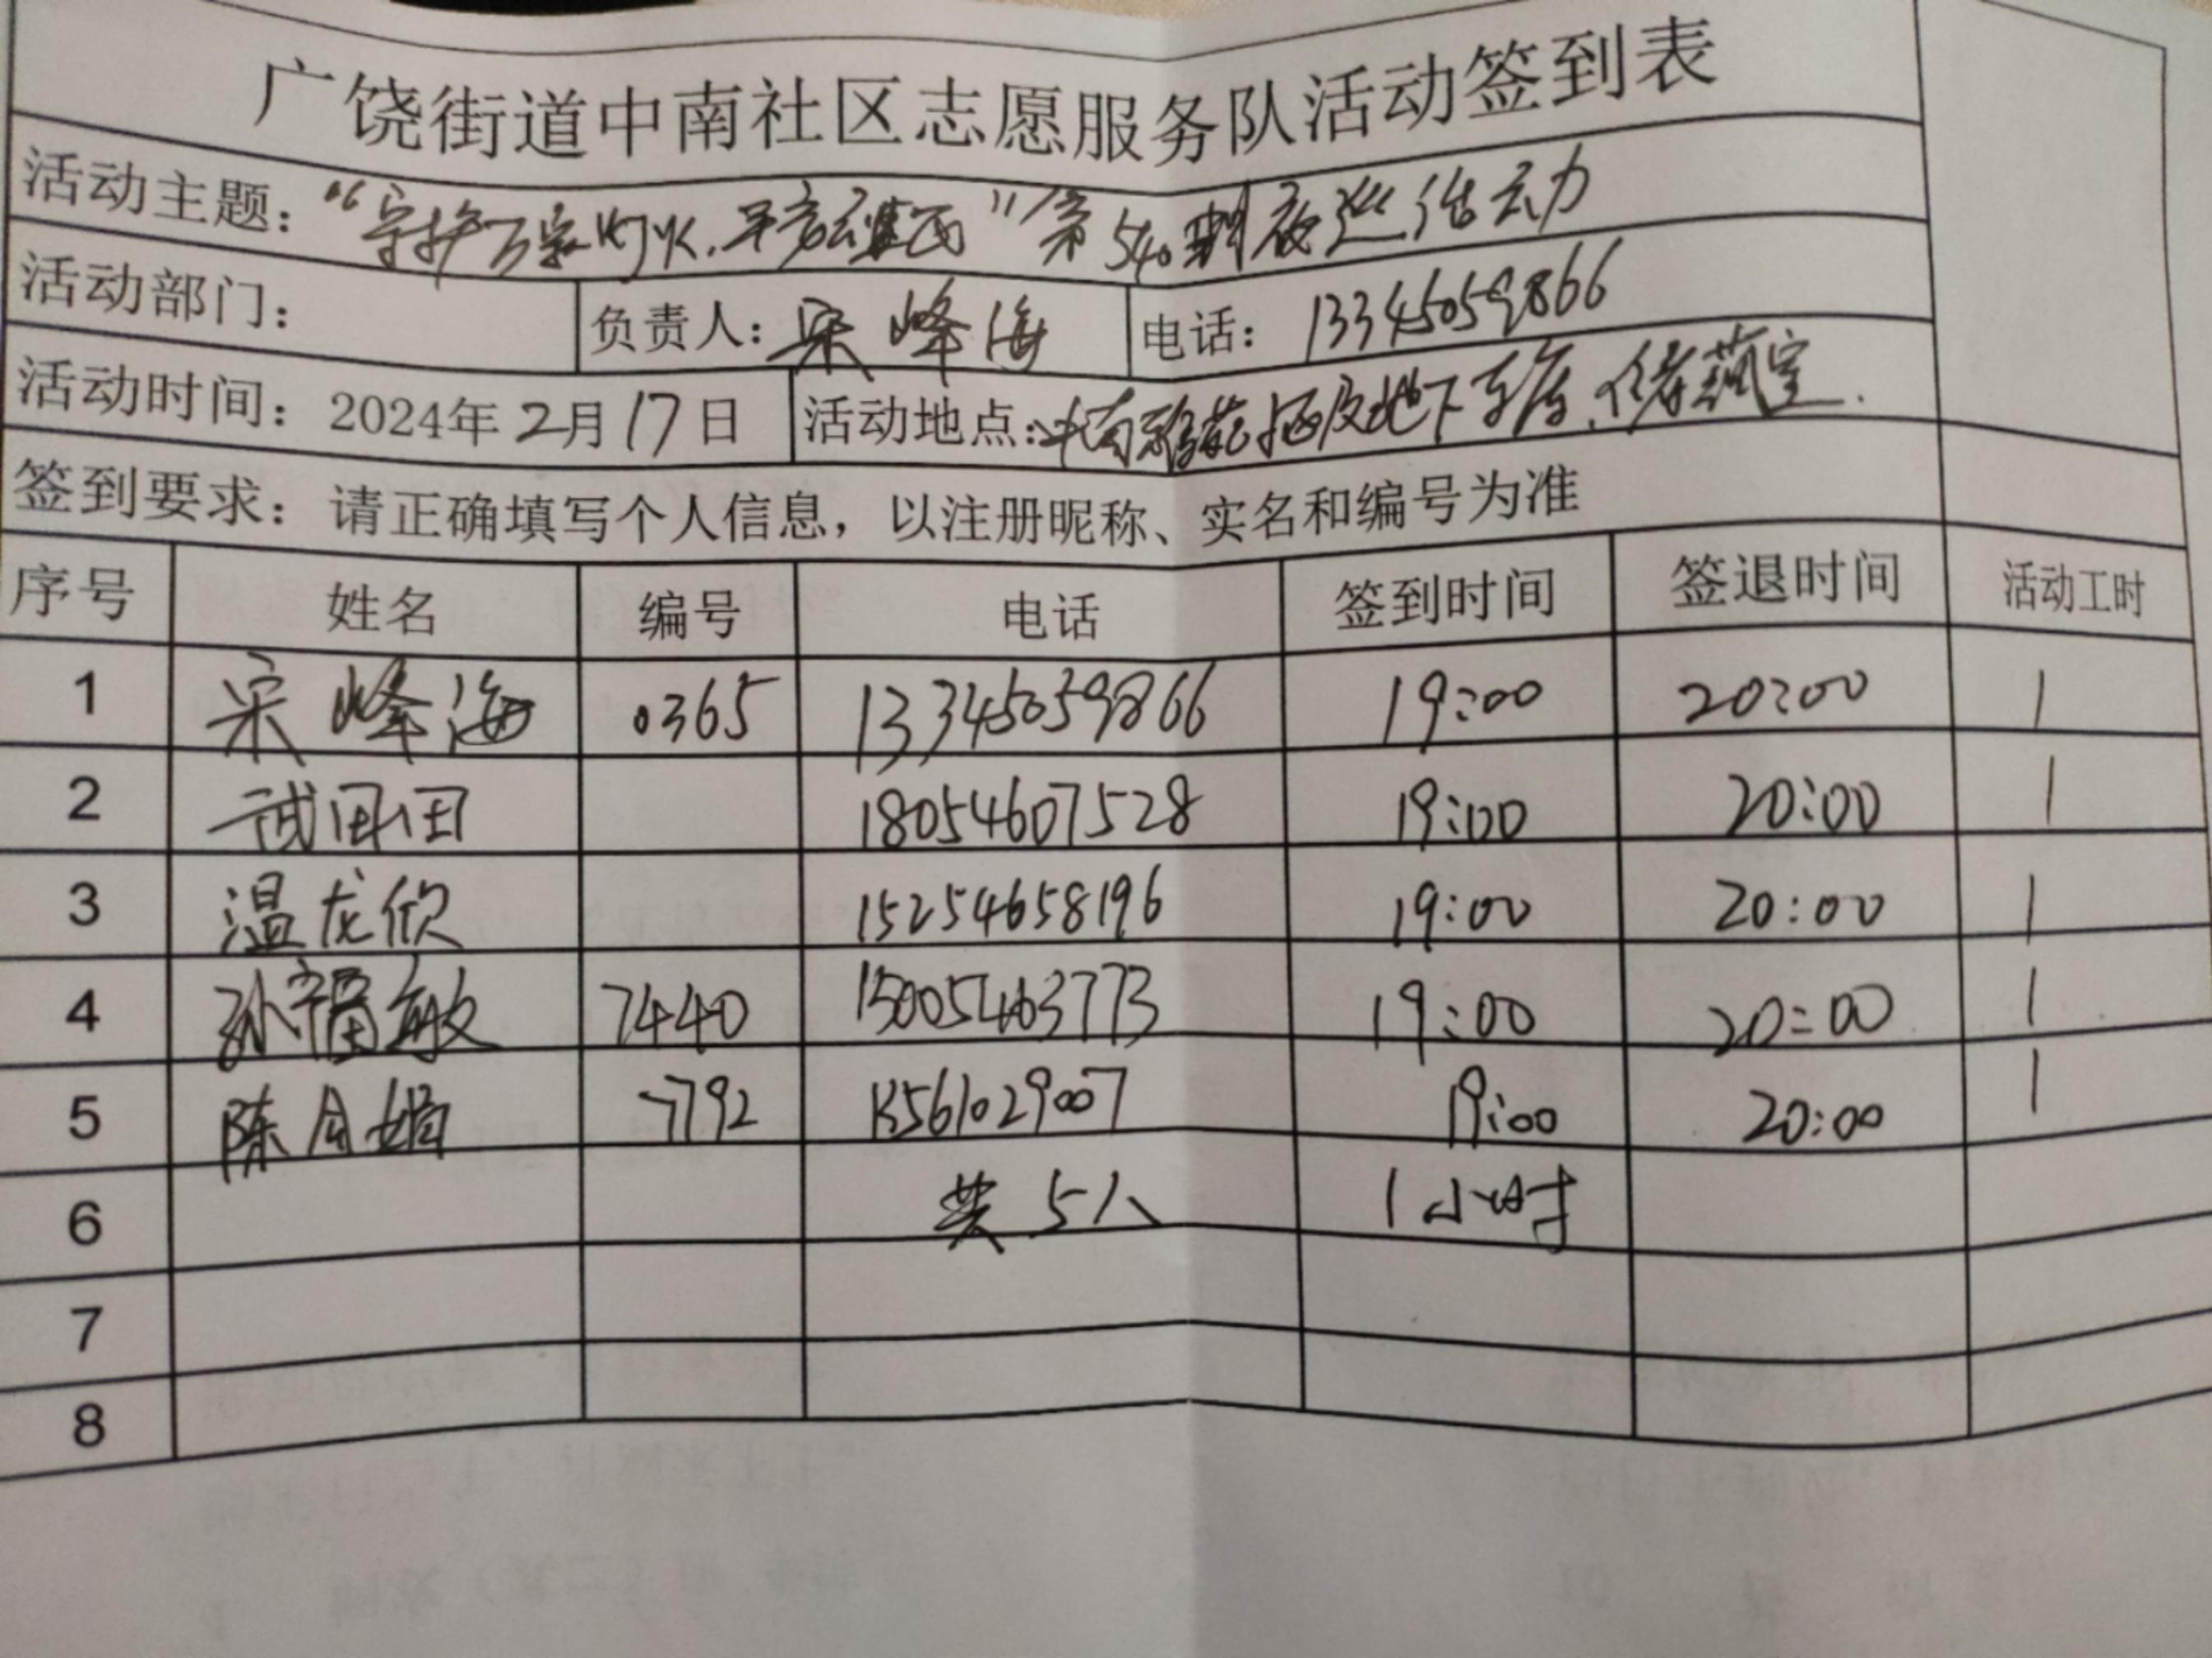 广饶街道中南社区志愿服务队活动签到表
活动主题："守护万家灯火,平安" 第540期夜巡活动
活动部门： 负责人：宋峰海 电话：13345059866
活动时间：2024年2月17日 活动地点：中南雅苑及地下车库、储藏室.
签到要求：请正确填写个人信息，以注册昵称、实名和编号为准
序号 姓名 编号 电话 签到时间 签退时间 活动工时
1 宋峰海 0365 13345059866 19:00 20:00 1
2 武田田 18054607528 19:00 20:00 1
3 温龙欣 15254658196 19:00 20:00 1
4 孙福敏 7440 15005463773 19:00 20:00 1
5 陈月娟 7792 13561029007 19:00 20:00 1
6 共5人 1小时
7
8